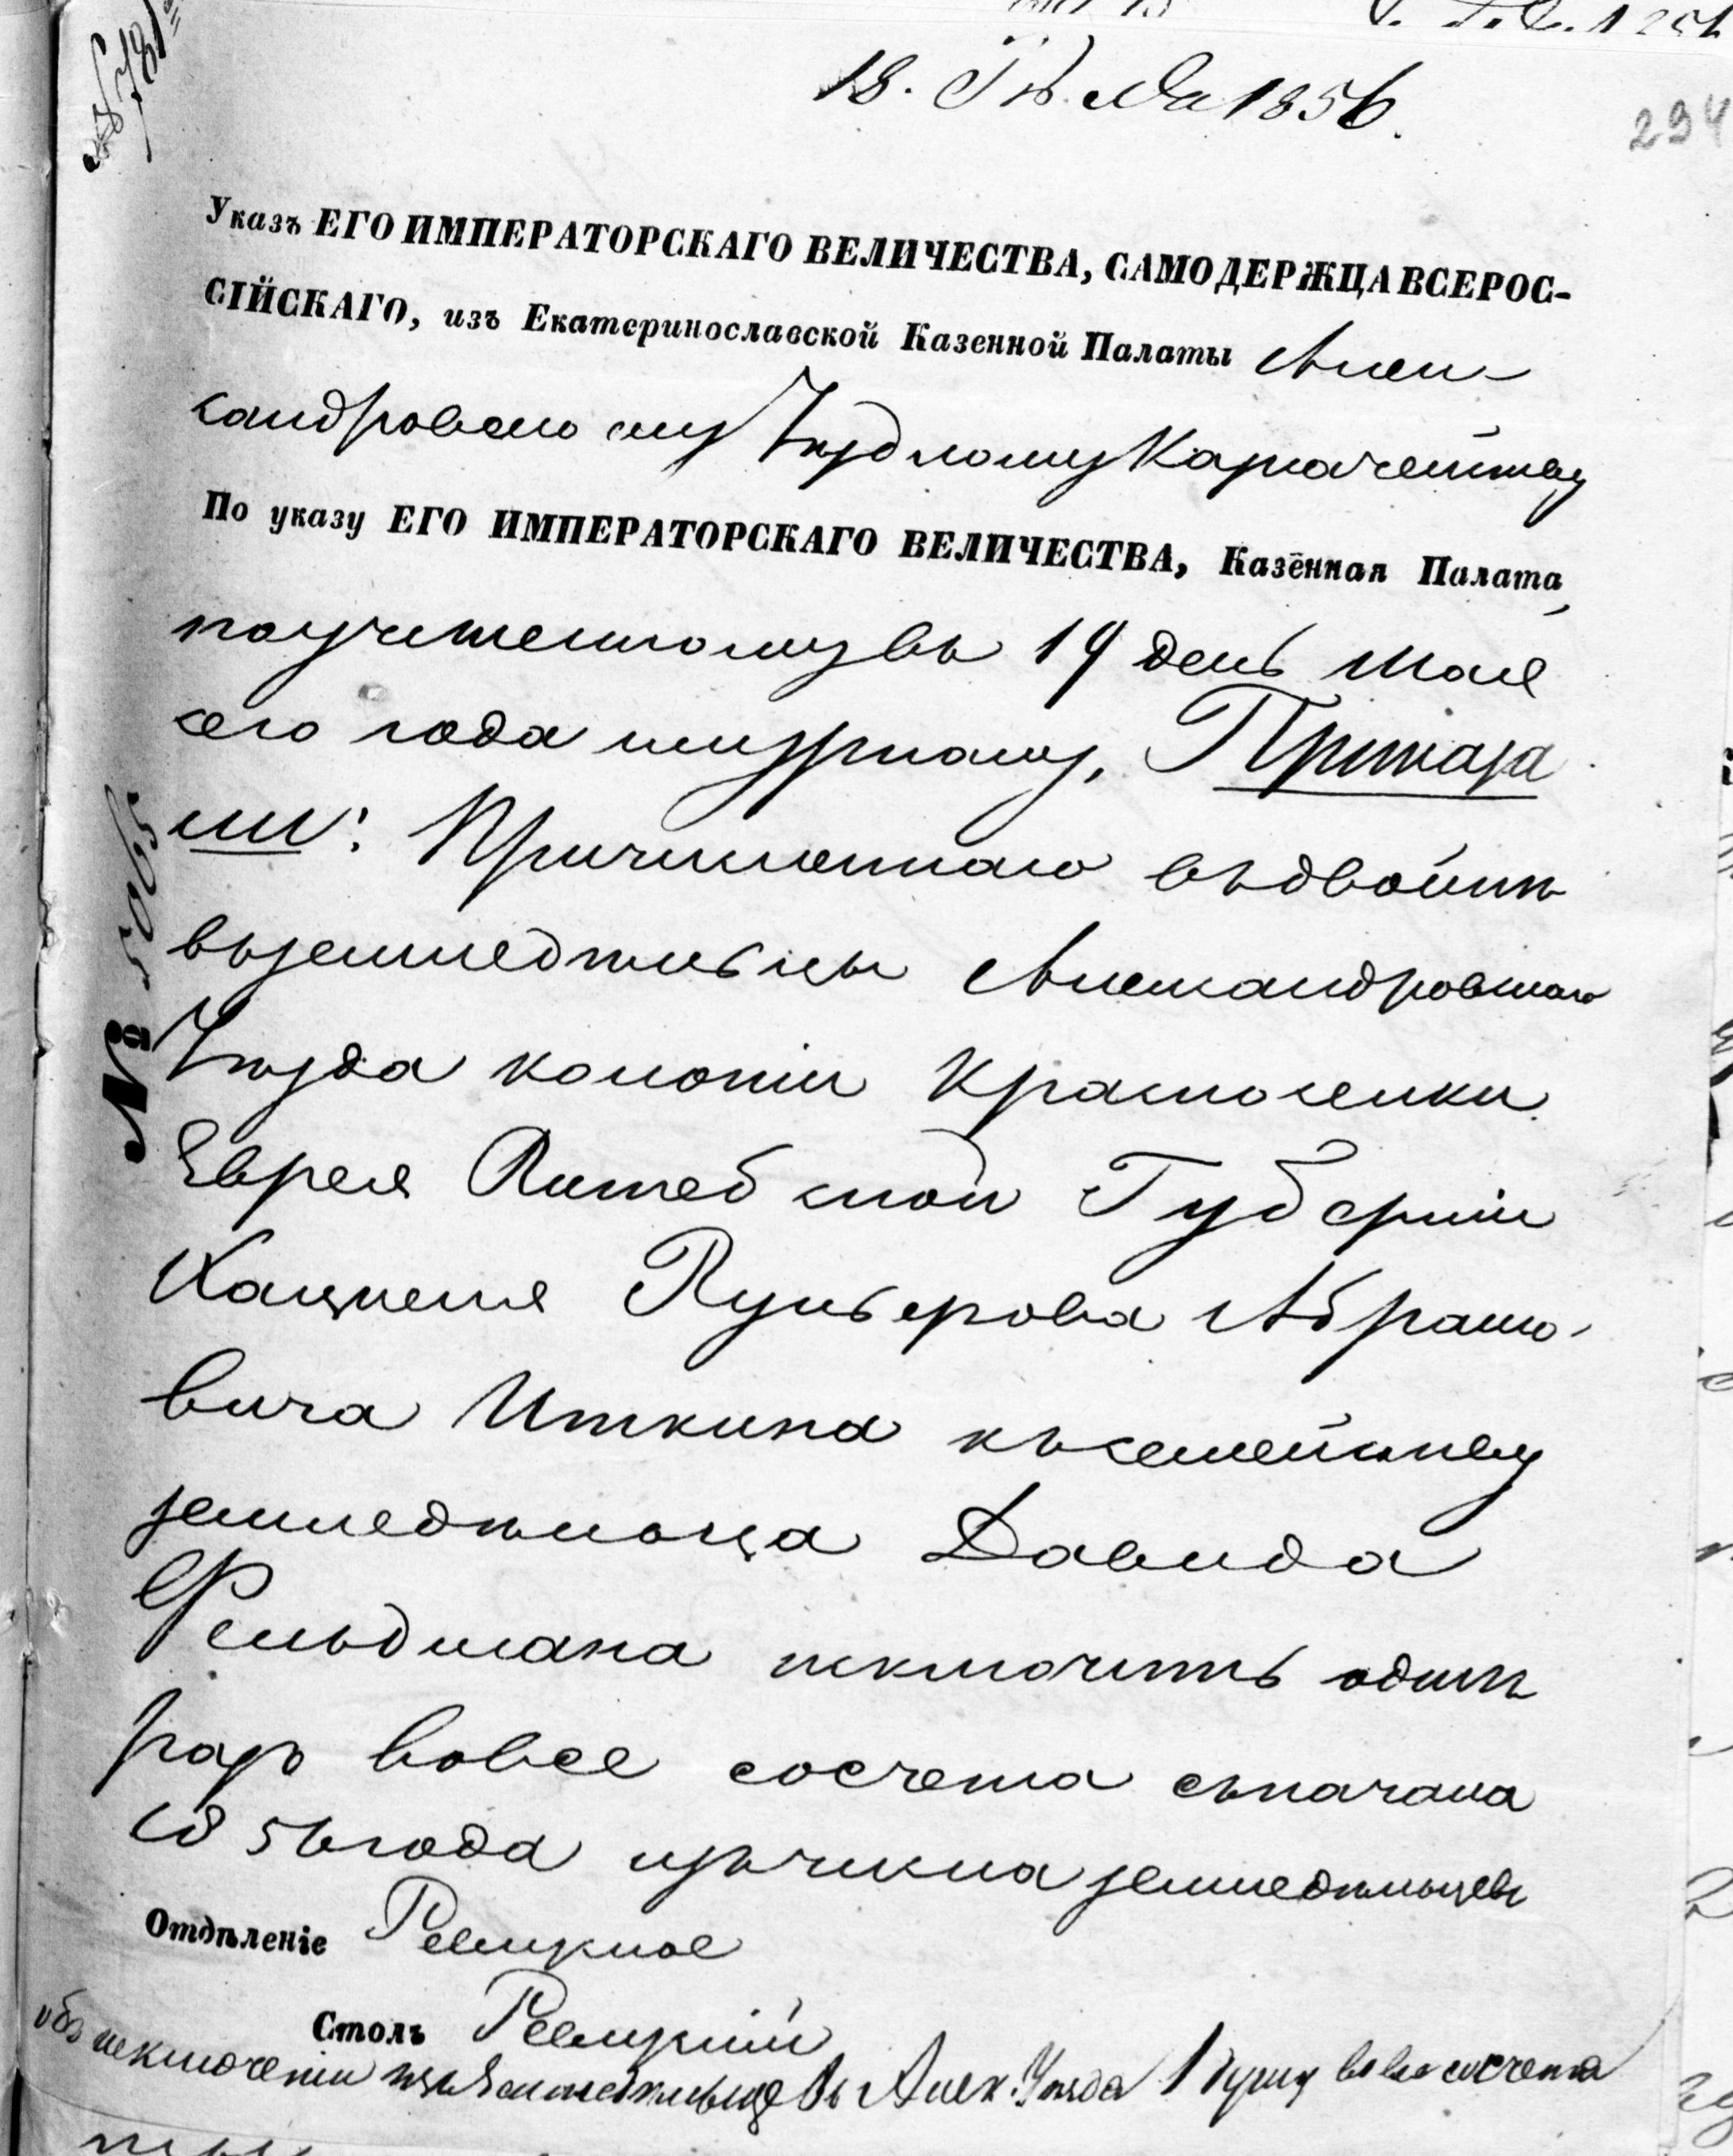 18. Іюня 1856.
294
Указъ ЕГО ИМПЕРАТОРСКАГО ВЕЛИЧЕСТВА, САМОДЕРЖЦА ВСЕРОС-
СІЙСКАГО, изъ Екатеринославской Казенной Палаты Алек-
сандровскому Уѣздному Казначейству
По указу ЕГО ИМПЕРАТОРСКАГО ВЕЛИЧЕСТВА, Казённая Палата,
по учиненному въ 19 день Мая
сего года журналу, Приказа
ли: Причисленнаго въ двойнѣ
въ земледѣльцы Александровскаго
Уѣзда колоніи Красноселки
Еврея Витебской Губерніи
Кацнеля Абрамо-
вича Иткина къ семейству
земледѣльца Давида
Фельдмана исключить одинъ
разъ вовсе со счета съ начала
1856 года изъ числа земледѣльцевъ
№ 5065
Отдѣленіе Ревизкое
Столъ Ревизкій
объ исключеніи изъ Земледѣльцевъ Алек. Уѣзда 1 душу вовсе со счета